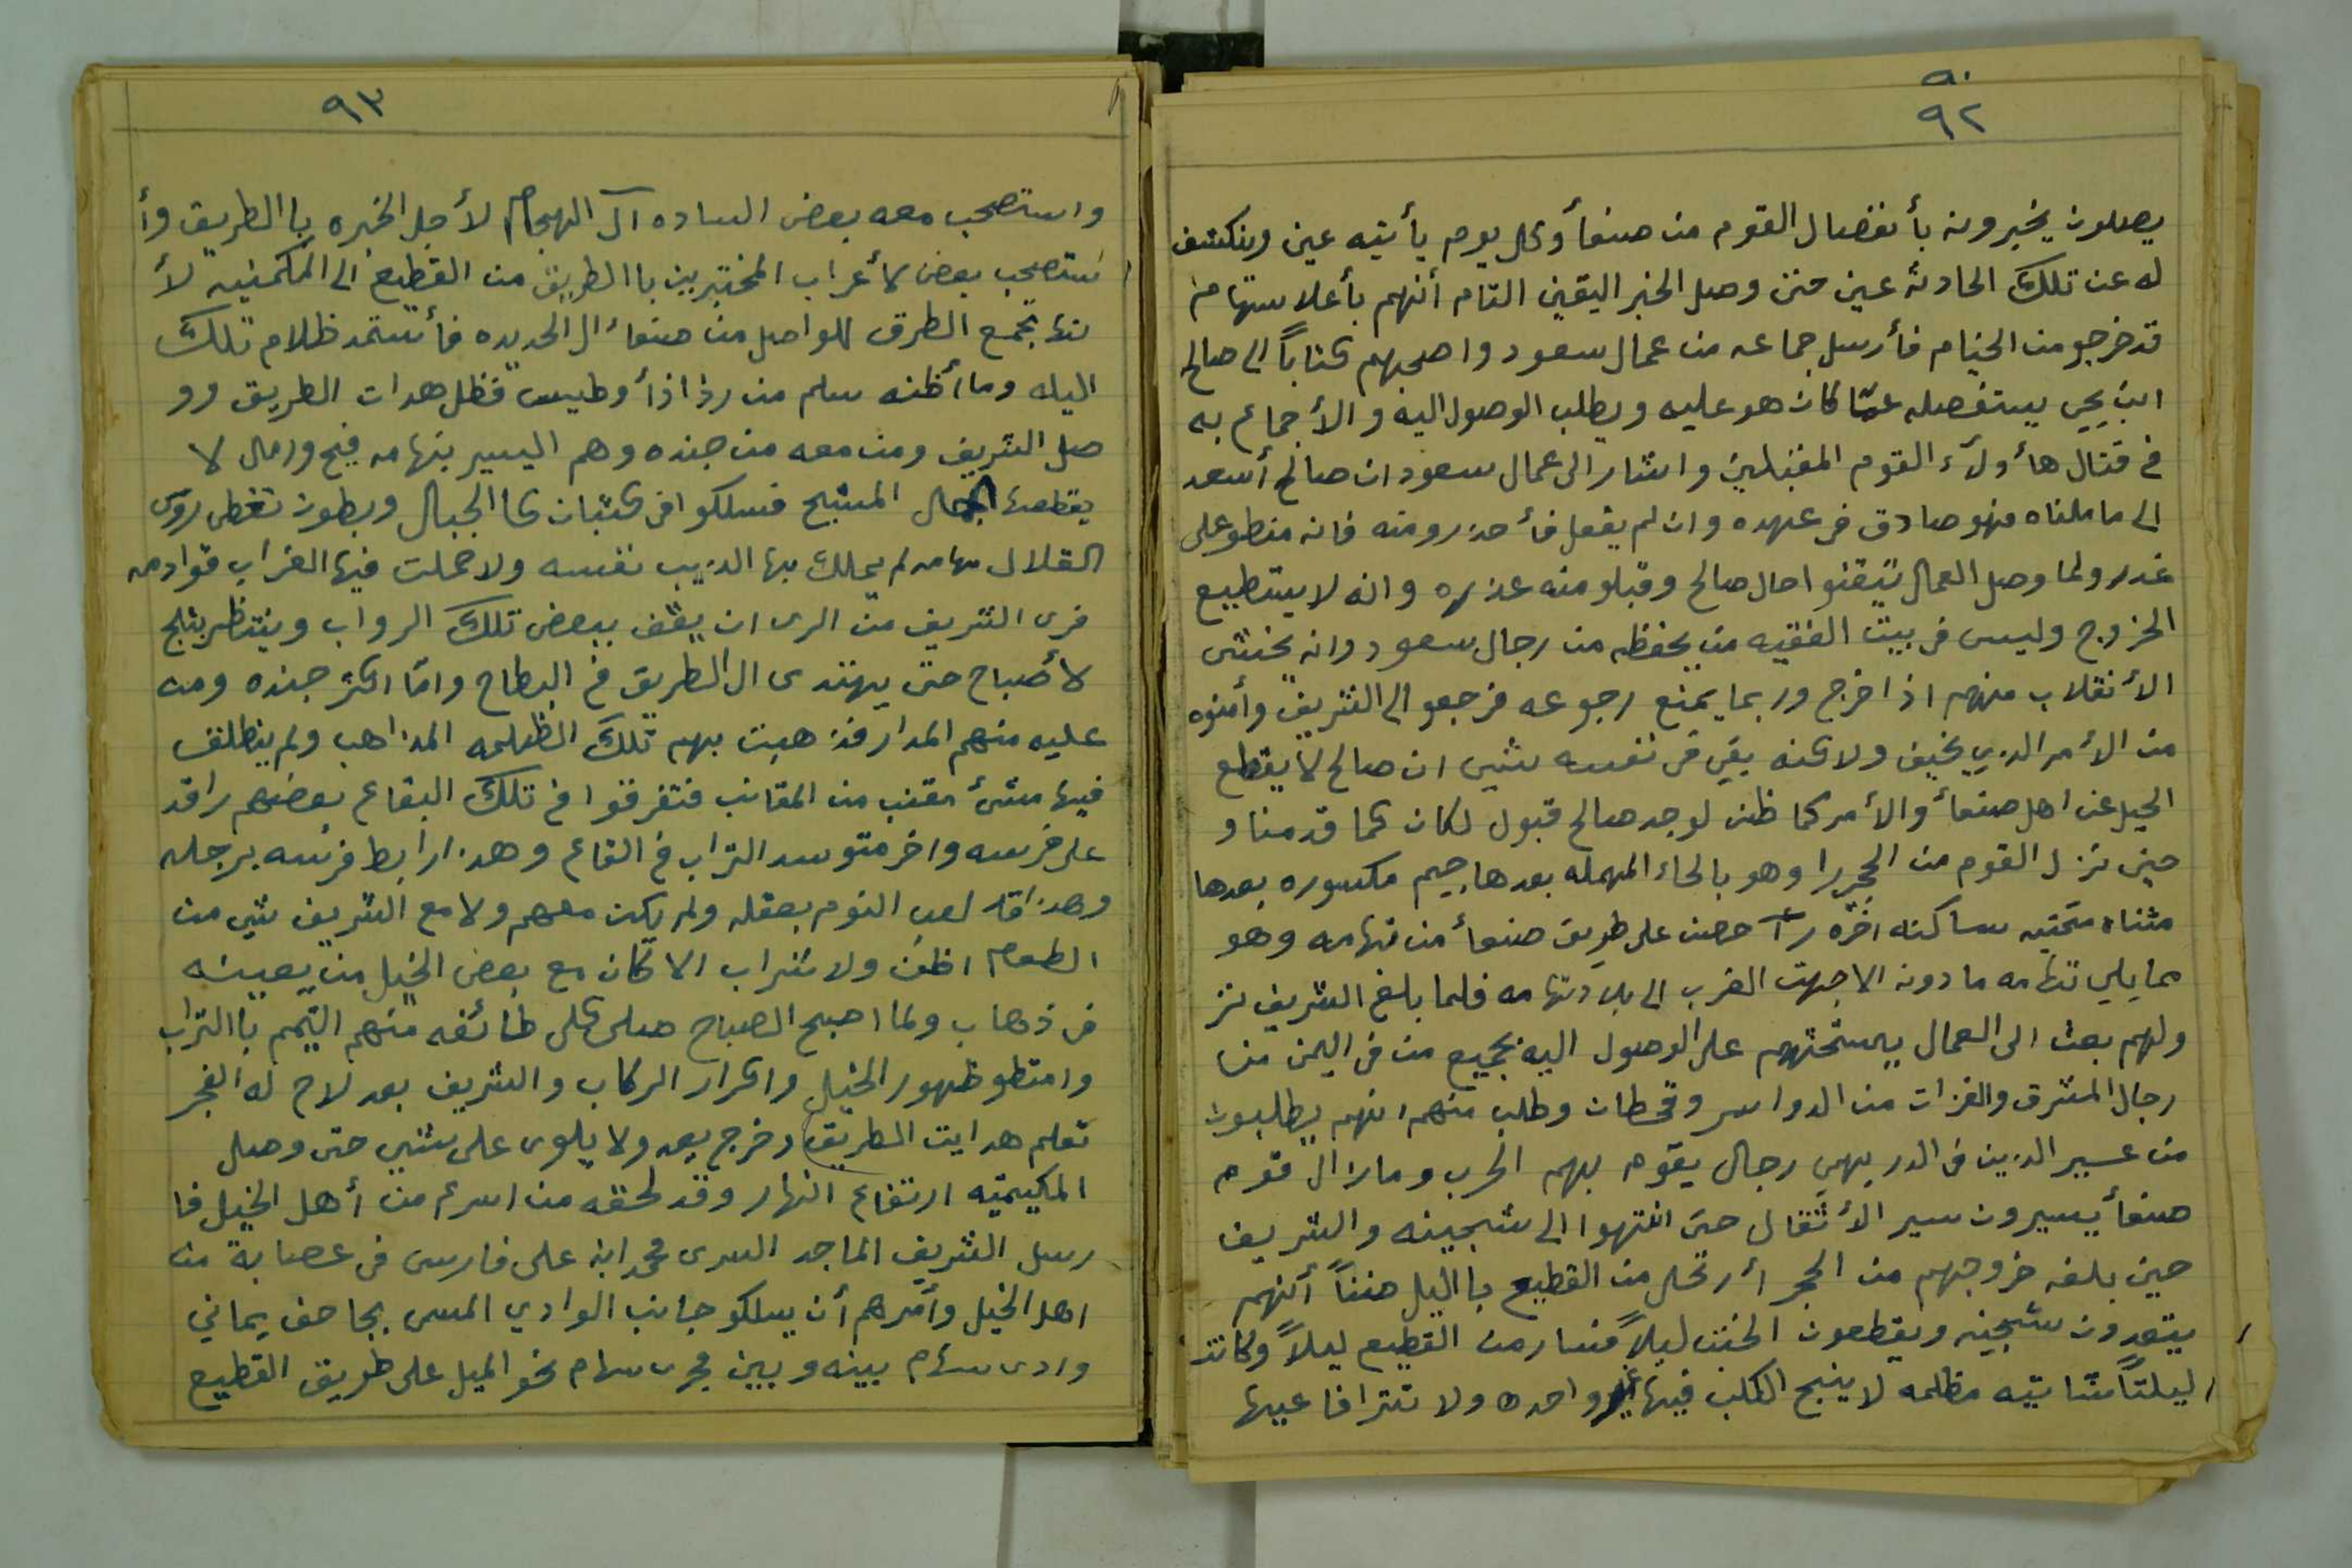 ٩٠
٩٢
يصلون يخبرونه بأنفضال القوم من صنعأ وكل يوم يأتيه عين وينكشف
له عن تلك الحادثه عين حتى وصل الخبر اليقين التام أنهم بأعلا ستهامه
قد خرجو من الخيام فأرسل جماعه من عمال سعود واصحبهم كتاباً الى صالح
ابن يحيى يستفصله عمّا كان هو عليه ويطلب الوصول اليه والأجماع به
في قتال هأولآء القوم المقبلين واشار الى عمال سعود ان صالح أسعد
الى ما ملناه فهو صادق في عهده وان لم يفعل فأحذرو منه فانه منطو على
غدر ولما وصل العمال تيقنوا حال صالح وقبلو منه عذره وانه لا يستطيع
الخروج وليس في بيت الفقيه من يحفظه من رجال سعود وانه يخشى
الأنقلاب منهم اذا خرج وربما يمنع رجوعه فرجعو الى الشريف وأمنوه
من الأمر الذي يخيف ولاكنه بقي في نفسه شي ان صالح لا يقطع
الحيل عن اهل صنعأ والأمر كما ظن لو جد صالح قبول لكان كما قدمنا و
حين نزل القوم من الحجرا وهو بالحاء المهمله بعدها جيم مكسوره بعدها
مثناه تحتيه ساكنه اخره رآ حصن على طريق صنعأ من تهامه وهو
مما يلي تهامه مادونه الا جهت الغرب الى بلاد تهامه فلما بلغ الشريف نز
ولهم بعث الى العمال يستحثهم على الوصول اليه بجميع من في اليمن من
رجال المشرق والغزات من الدواسر وقحطان وطلب منهم انهم يطلبون
من عسير الذين في الدريهمي رجال يقوم بهم الحرب ومازال قوم
صنعأ يسيرون سير الأثقال حتى انتهوا الى شجينه والشريف
حين بلغه خروجهم من الحجر أرتحل من القطيع با اليل ظنناً أنهم
يتعدون شجينه ويقطعون الخبت ليلاً فسار من القطيع ليلاً وكانت
ليلتاً شاتيه مظلمه لا ينبح الكلب فيها غير واحده ولا تترافا عيها
٩٣
واستصحب معه بعض الساده آل النهجام لأجل الخبره با الطريق وأ
ستصحب بعض لأعراب المختبرين با الطريق من القطيع الى المكمنيه لأ
نها تجمع الطرق للواصل من صنعاء الى الحديده فأستمد ظلام تلك
اليله وما أظنه سلم من رذاذأ وطيس فظل هدات الطريق وو
صل الشريف ومن معه من جنده وهم اليسير بتهامه فيح ورمال لا
يقطعها الجمال المشبح فسلكو افي كثبان كا الجبال وبطون تغطى روس
القلال تهامه لم يملك بها الذيب نفسه ولا حملت فيها الغراب قوادمه
فرى الشريف من الرى ان يقف ببعض تلك الرواب وينتظر بثلج
لأصباح حتى يهتدى الى الطريق في البطاح وامّا اكثر جنده ومن
عليه منهم المدار فذهبت بهم تلك الظلمه المذاهب ولم ينطلق
فيها مشئ مقنب من المقانب فتفرقوا في تلك البقاع بعضهم راقد
على فرسه واخر متوسد التراب في القاع وهذا رابط فرسه برجله
وهذا قد لعب النوم بعقله ولم يكن معهم ولا مع الشريف شي من
الطعام اظن ولا شراب الا كان مع بعض الخيل من يعينه
في ذهاب ولما اصبح الصباح صلى كلى طائفه منهم التيمم با التراب
وامتطو ظهور الخيل واكرار الركاب والشريف بعد لاح له الفجر
تعلم هدايت الطريق وخرج يعد ولا يلوى على شي حتى وصل
المكيمنيه ارتفاع النهار وقد لحقه من اسرع من أهل الخيل فا
رسل الشريف الماجد السرى محمد ابن على فارس في عصابة من
اهل الخيل وأمرهم أن يسلكو جانب الوادي المسى بجاحف يماني
وادى سهام بينه وبين مجرى سهام نحو الميل على طريق القطيع